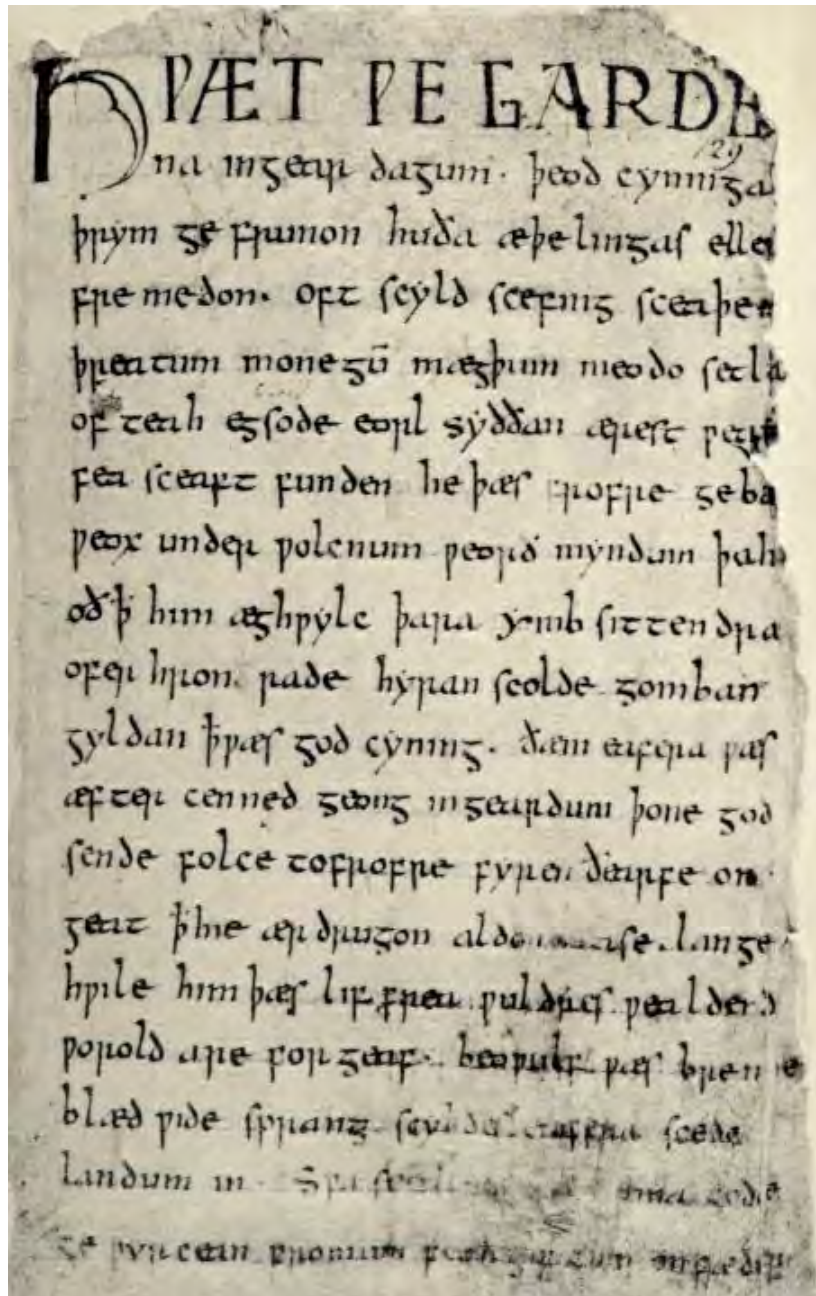 HǷÆT ǷE GARDE
na ingear dagum· þeod cyninga
þrym ge frunon huða æþelingas ellen
fre medon. oft scyld scefing sceaþena
þreatum monegū mægþum meodo setla
of teah egsode eorl syððan ærest ƿearð
fea sceaft funden he þæs frofre geba
ƿeox under ƿolcnum ƿeorð myndum þah
oð ꝥ him æghƿylc þara ymb sittendra
ofer hron rade hyran scolde gomban
gyldan ꝥ ƿæs god cyning· ðæm eafera ƿæs
æfter cenned geong ingeardum þone god
sende folce tofrofre fyren ðearfe on
geat ꝥ hie ær drugon lange
hƿile him þæs liffrea ƿuldres ƿealdend
ƿorold are for geaf· beoƿulf ƿæs breme
blæd ƿide sprang scede
landum in
ge ƿyrcean fromum feoh giftum